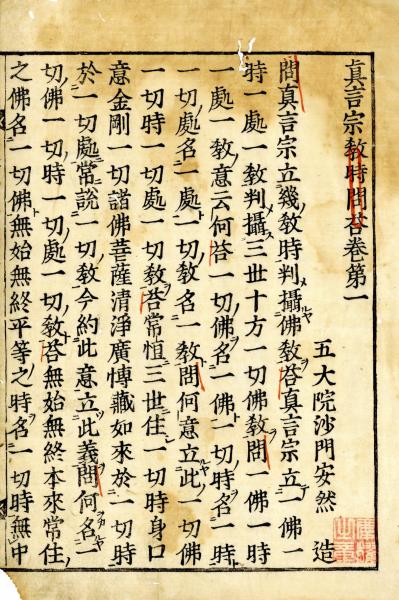 真言宗教時問荅卷第一
五大院沙門安然 造
問真言宗立幾教時判攝佛教荅真言宗立一佛一
時一處一教判攝三世十方一切佛教問一佛一時
一處一教意云何荅一切佛名一佛一切時名一時
一切處名一處一切教名一教問何意立此一切佛
一切時一切處一切教荅常恒三世住一切時身口
意金剛一切諸佛菩薩清淨廣博藏如來於一切時
於一切處常說一切教今約此意立此義問何名一
切佛一切時一切處一切教荅無始無終本來常住
之佛名一切佛無始無終平等之時名一切時無中